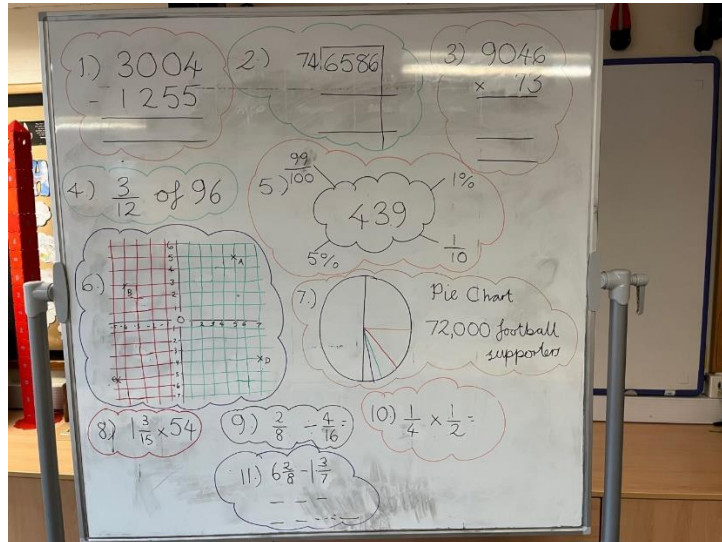 1.) 3004
- 1255
2.) 74 6586
3.) 9046
× 73
4.) 3/12 of 96
5.) 439
99/100
1%
5%
1/10
6.)
A
B
D
7.) Pie Chart
72,000 football
supporters
8.) 1 3/15 × 54
9.) 2/8 ÷ 4/16 =
10.) 1/4 × 1/2 =
11.) 6 2/8 - 1 3/7